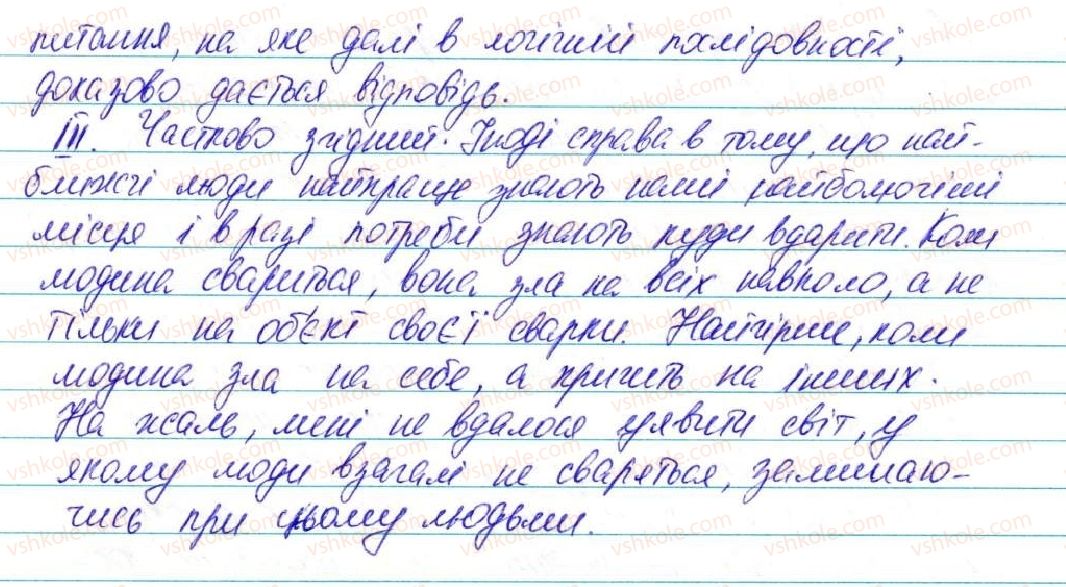 питання, на яке далі в логічній послідовності,
доказово дається відповідь.
III. Частково згідний. Іноді справа в тому, що най-
ближчі люди найкраще знають наші найболючіші
місця і в разі потреби знають куди вдарити. Коли
людина свариться, вона зла на всіх навколо, а не
тільки на об'єкт своєї сварки. Найгірше, коли
людина зла на себе, а кричить на інших.
На жаль, мені не вдалося уявити світ, у
якому люди взагалі не сваряться, залишаю-
чись при цьому людьми.